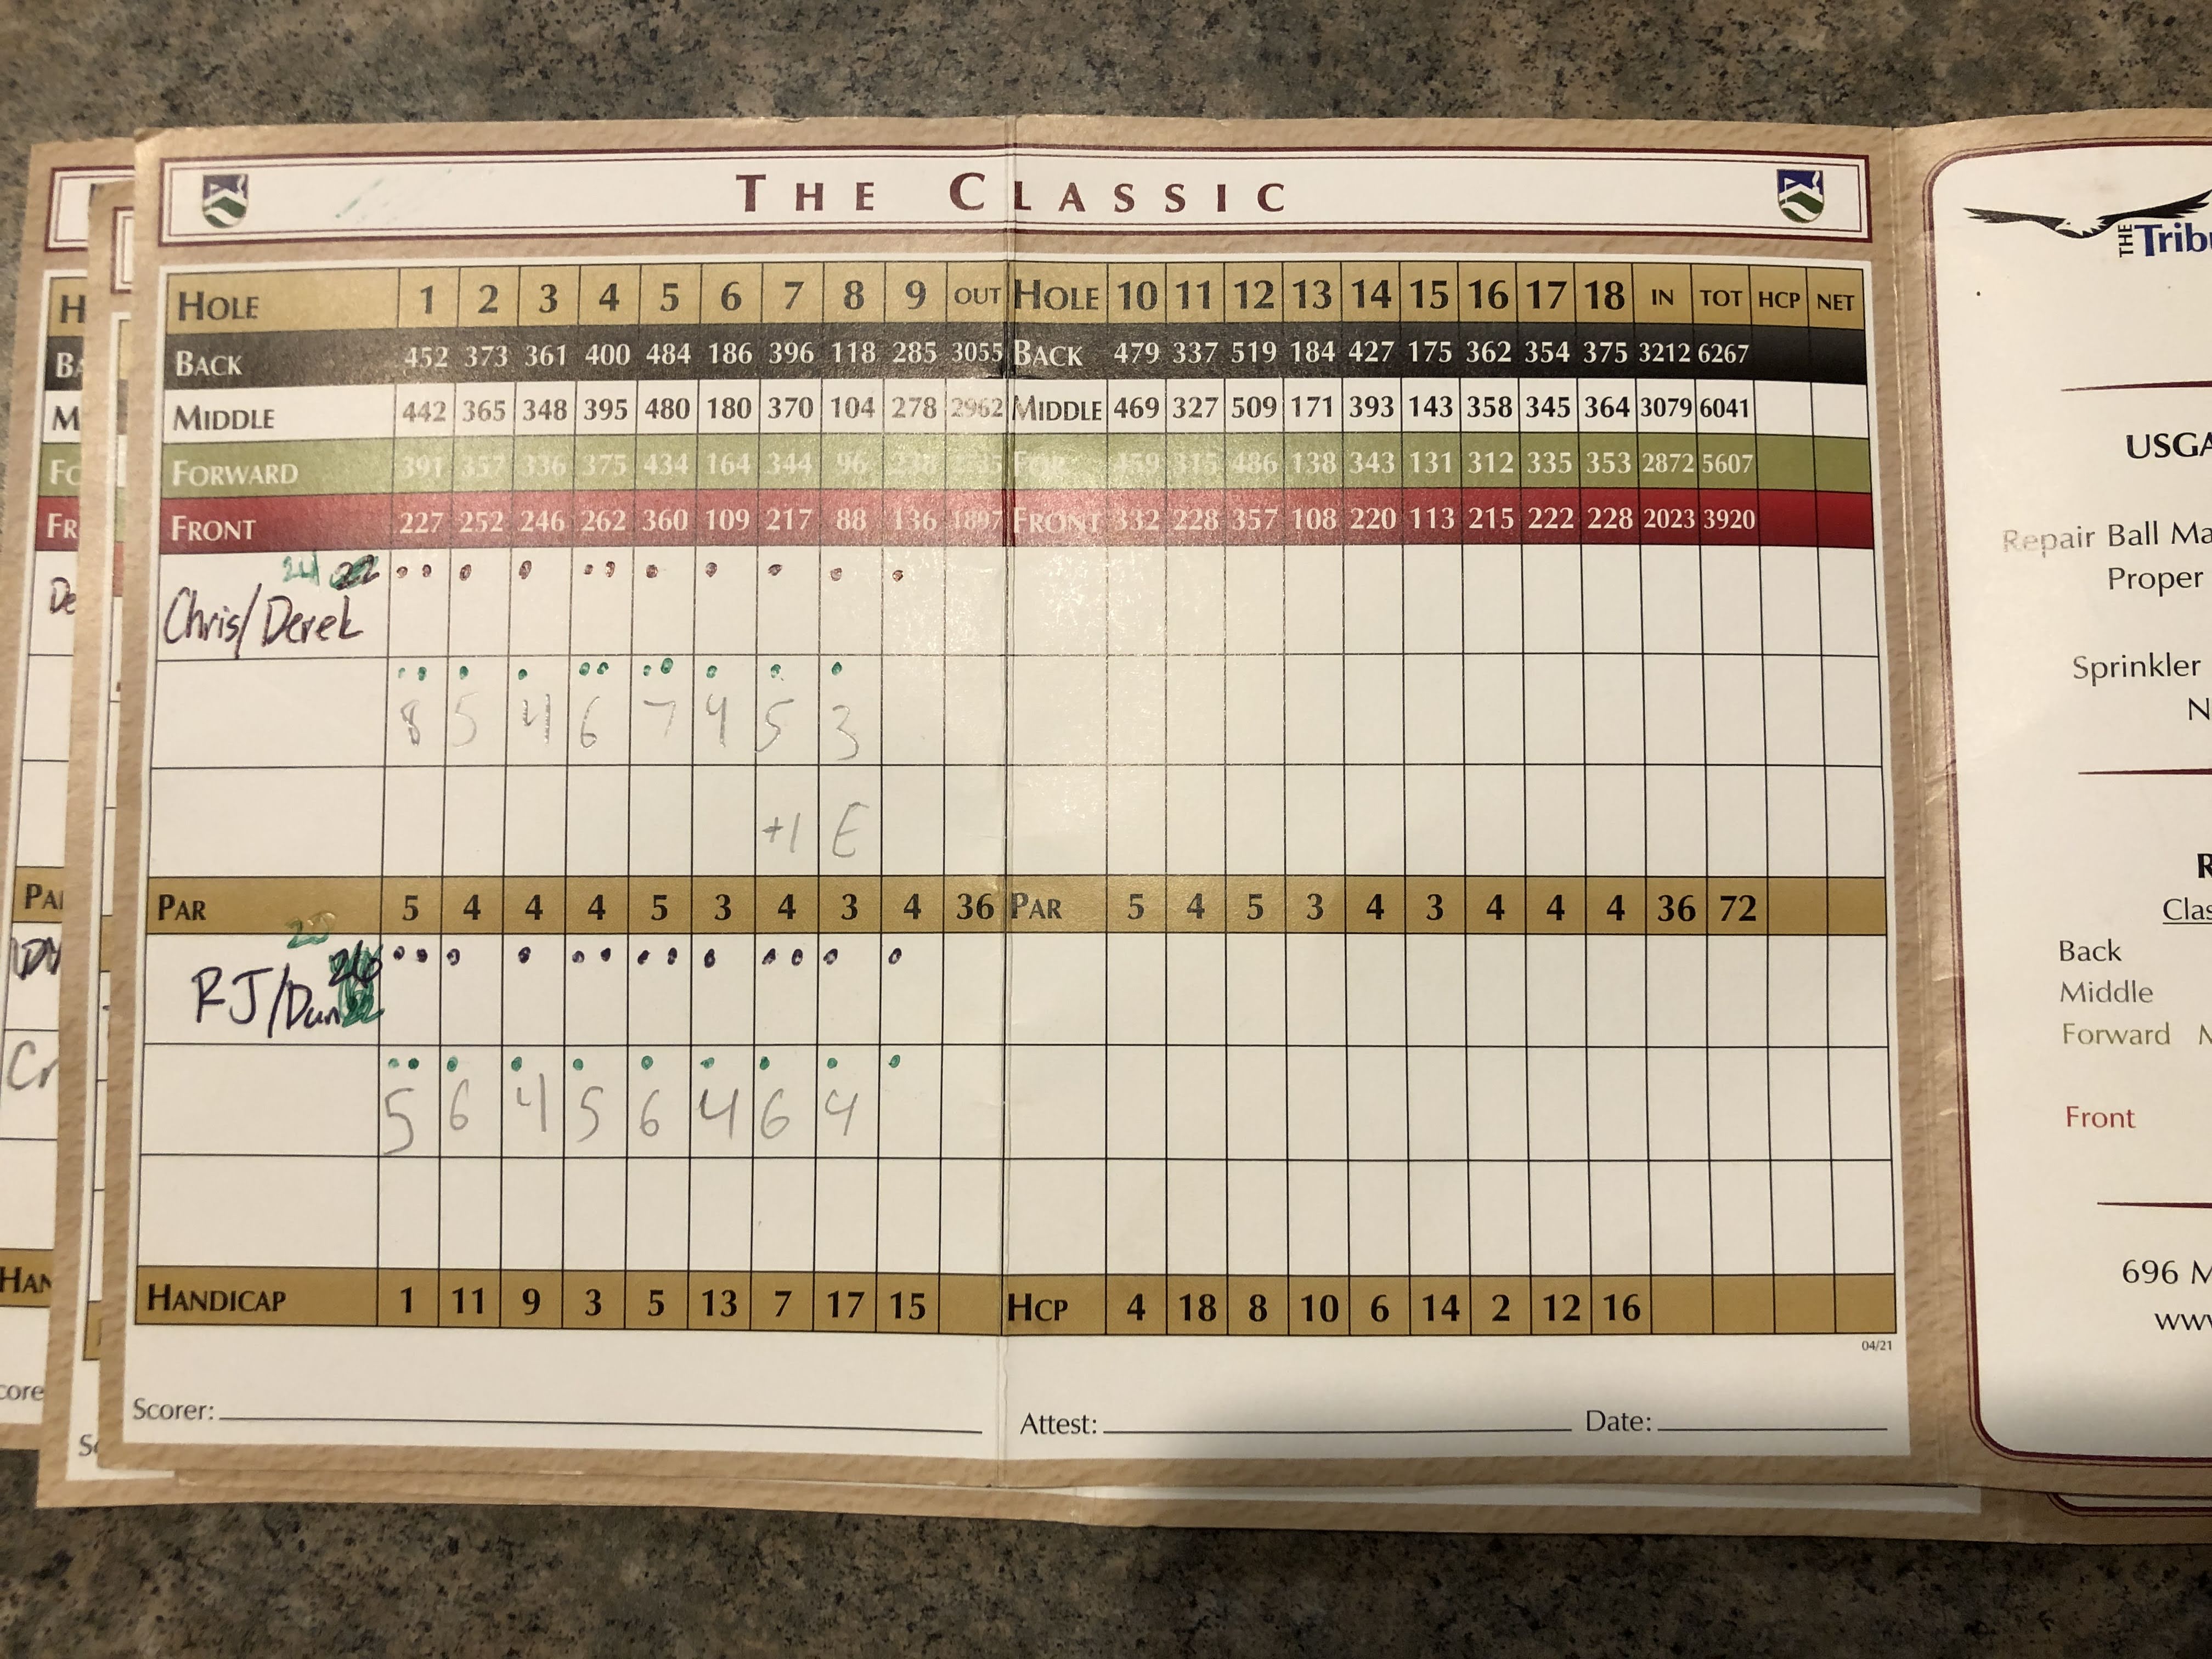 THE CLASSIC
HOLE 1 2 3 4 5 6 7 8 9 OUT HOLE 10 11 12 13 14 15 16 17 18 IN TOT HCP NET
BACK 452 373 361 400 484 186 396 118 285 3055 BACK 479 337 519 184 427 175 362 354 375 3212 6267
MIDDLE 442 365 348 395 480 180 370 104 278 2962 MIDDLE 469 327 509 171 393 143 358 345 364 3079 6041
FORWARD 391 357 336 375 434 164 344 96 FOR 459 315 486 138 343 131 312 335 353 2872 5607
FRONT 227 252 246 262 360 109 217 88 136 1897 FRONT 332 228 357 108 220 113 215 222 228 2023 3920
24 22
Chris/Derek
8 5 4 6 7 4 5 3
+1 E
PAR 5 4 4 4 5 3 4 3 4 36 PAR 5 4 5 3 4 3 4 4 4 36 72
20
26
RJ/Dun 22
5 6 4 5 6 4 6 4
HANDICAP 1 11 9 3 5 13 7 17 15 HCP 4 18 8 10 6 14 2 12 16
04/21
Scorer: Attest: Date:
THE Tribu
USGA
Repair Ball Ma
Proper
Sprinkler
N
R
Clas
Back
Middle
Forward M
Front
696 M
www
H
BA
M
FO
FR
De
PA
Cr
HAN
core
Sc